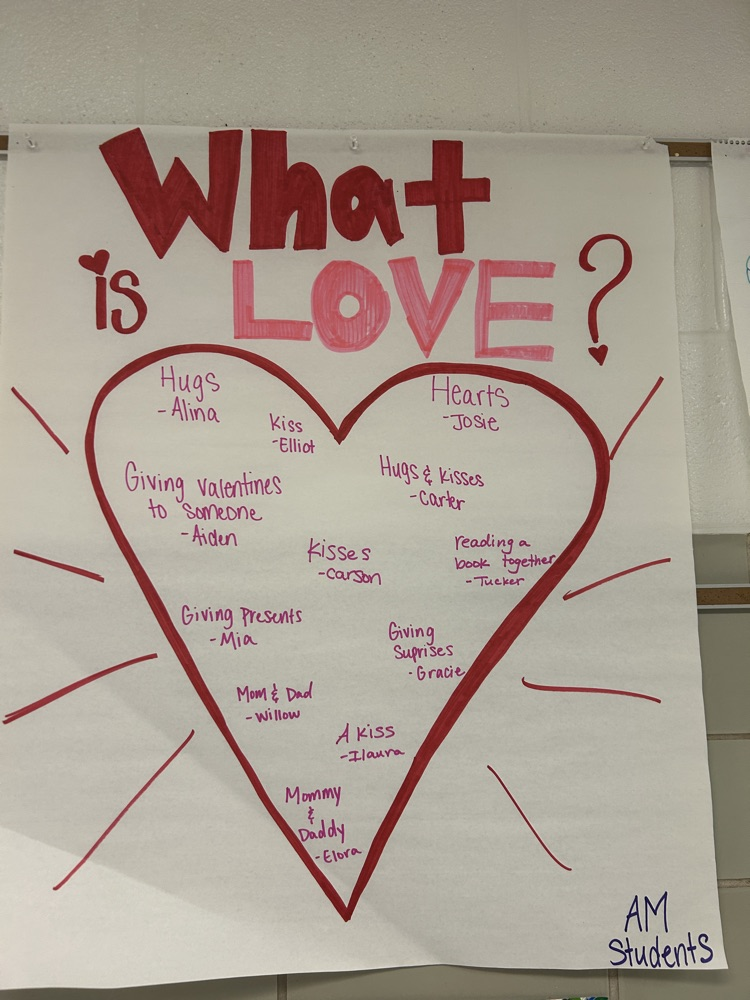 What
is LOVE?
Hugs
-Alina
Kiss
-Elliot
Hearts
-Josie
Giving valentines
to someone
-Aiden
Hugs & kisses
-Carter
Kisses
-Carson
reading a
book together
-Tucker
Giving presents
-Mia
Giving
Suprises
-Gracie
Mom & Dad
-Willow
A kiss
-Ilaura
Mommy
&
Daddy
-Elora
AM
Students